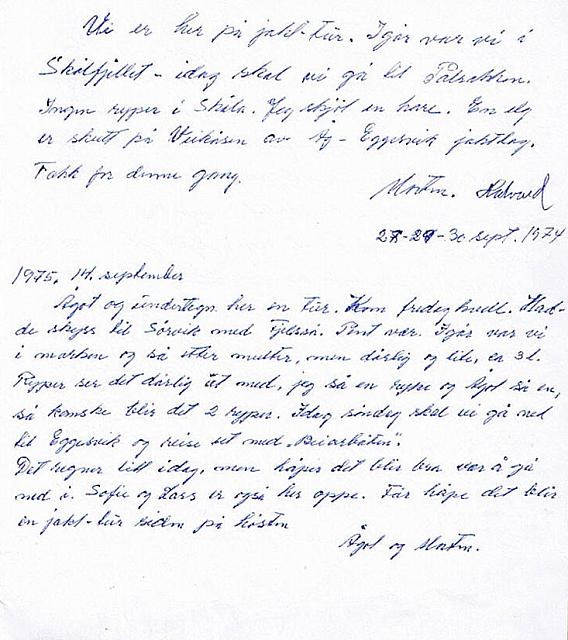 Vi er her på jakt-tur. Igår var vi i
Skålfjellet - idag skal vi gå til
Ingen ryper i Skåla. Jeg skjøt en hare. En elg
er skutt på Veikåsen av Ag - Eggesvik jaktlag.
Takk for denne gang.
Morten.
28-29-30 sept. 1974
1975, 14. september
Ågot og undertegn. her en tur. Kom fredag kveld. Had-
de skyss til Sørvik med Pent vær. Igår var vi
i marken og så etter multer, men dårlig og lite, ca 3 l.
Ryper ser det dårlig ut med, jeg så en rype og Ågot så en,
så kanske blir det 2 ryper. Idag søndag skal vi gå ned
til Eggesvik og reise ut med "Beiarbåten".
Det regner litt idag, men håper det blir bra vær å gå
ned i. Sofie og Lars er også her oppe. Får håpe det blir
en jakt-tur siden på høsten
Ågot og Morten.